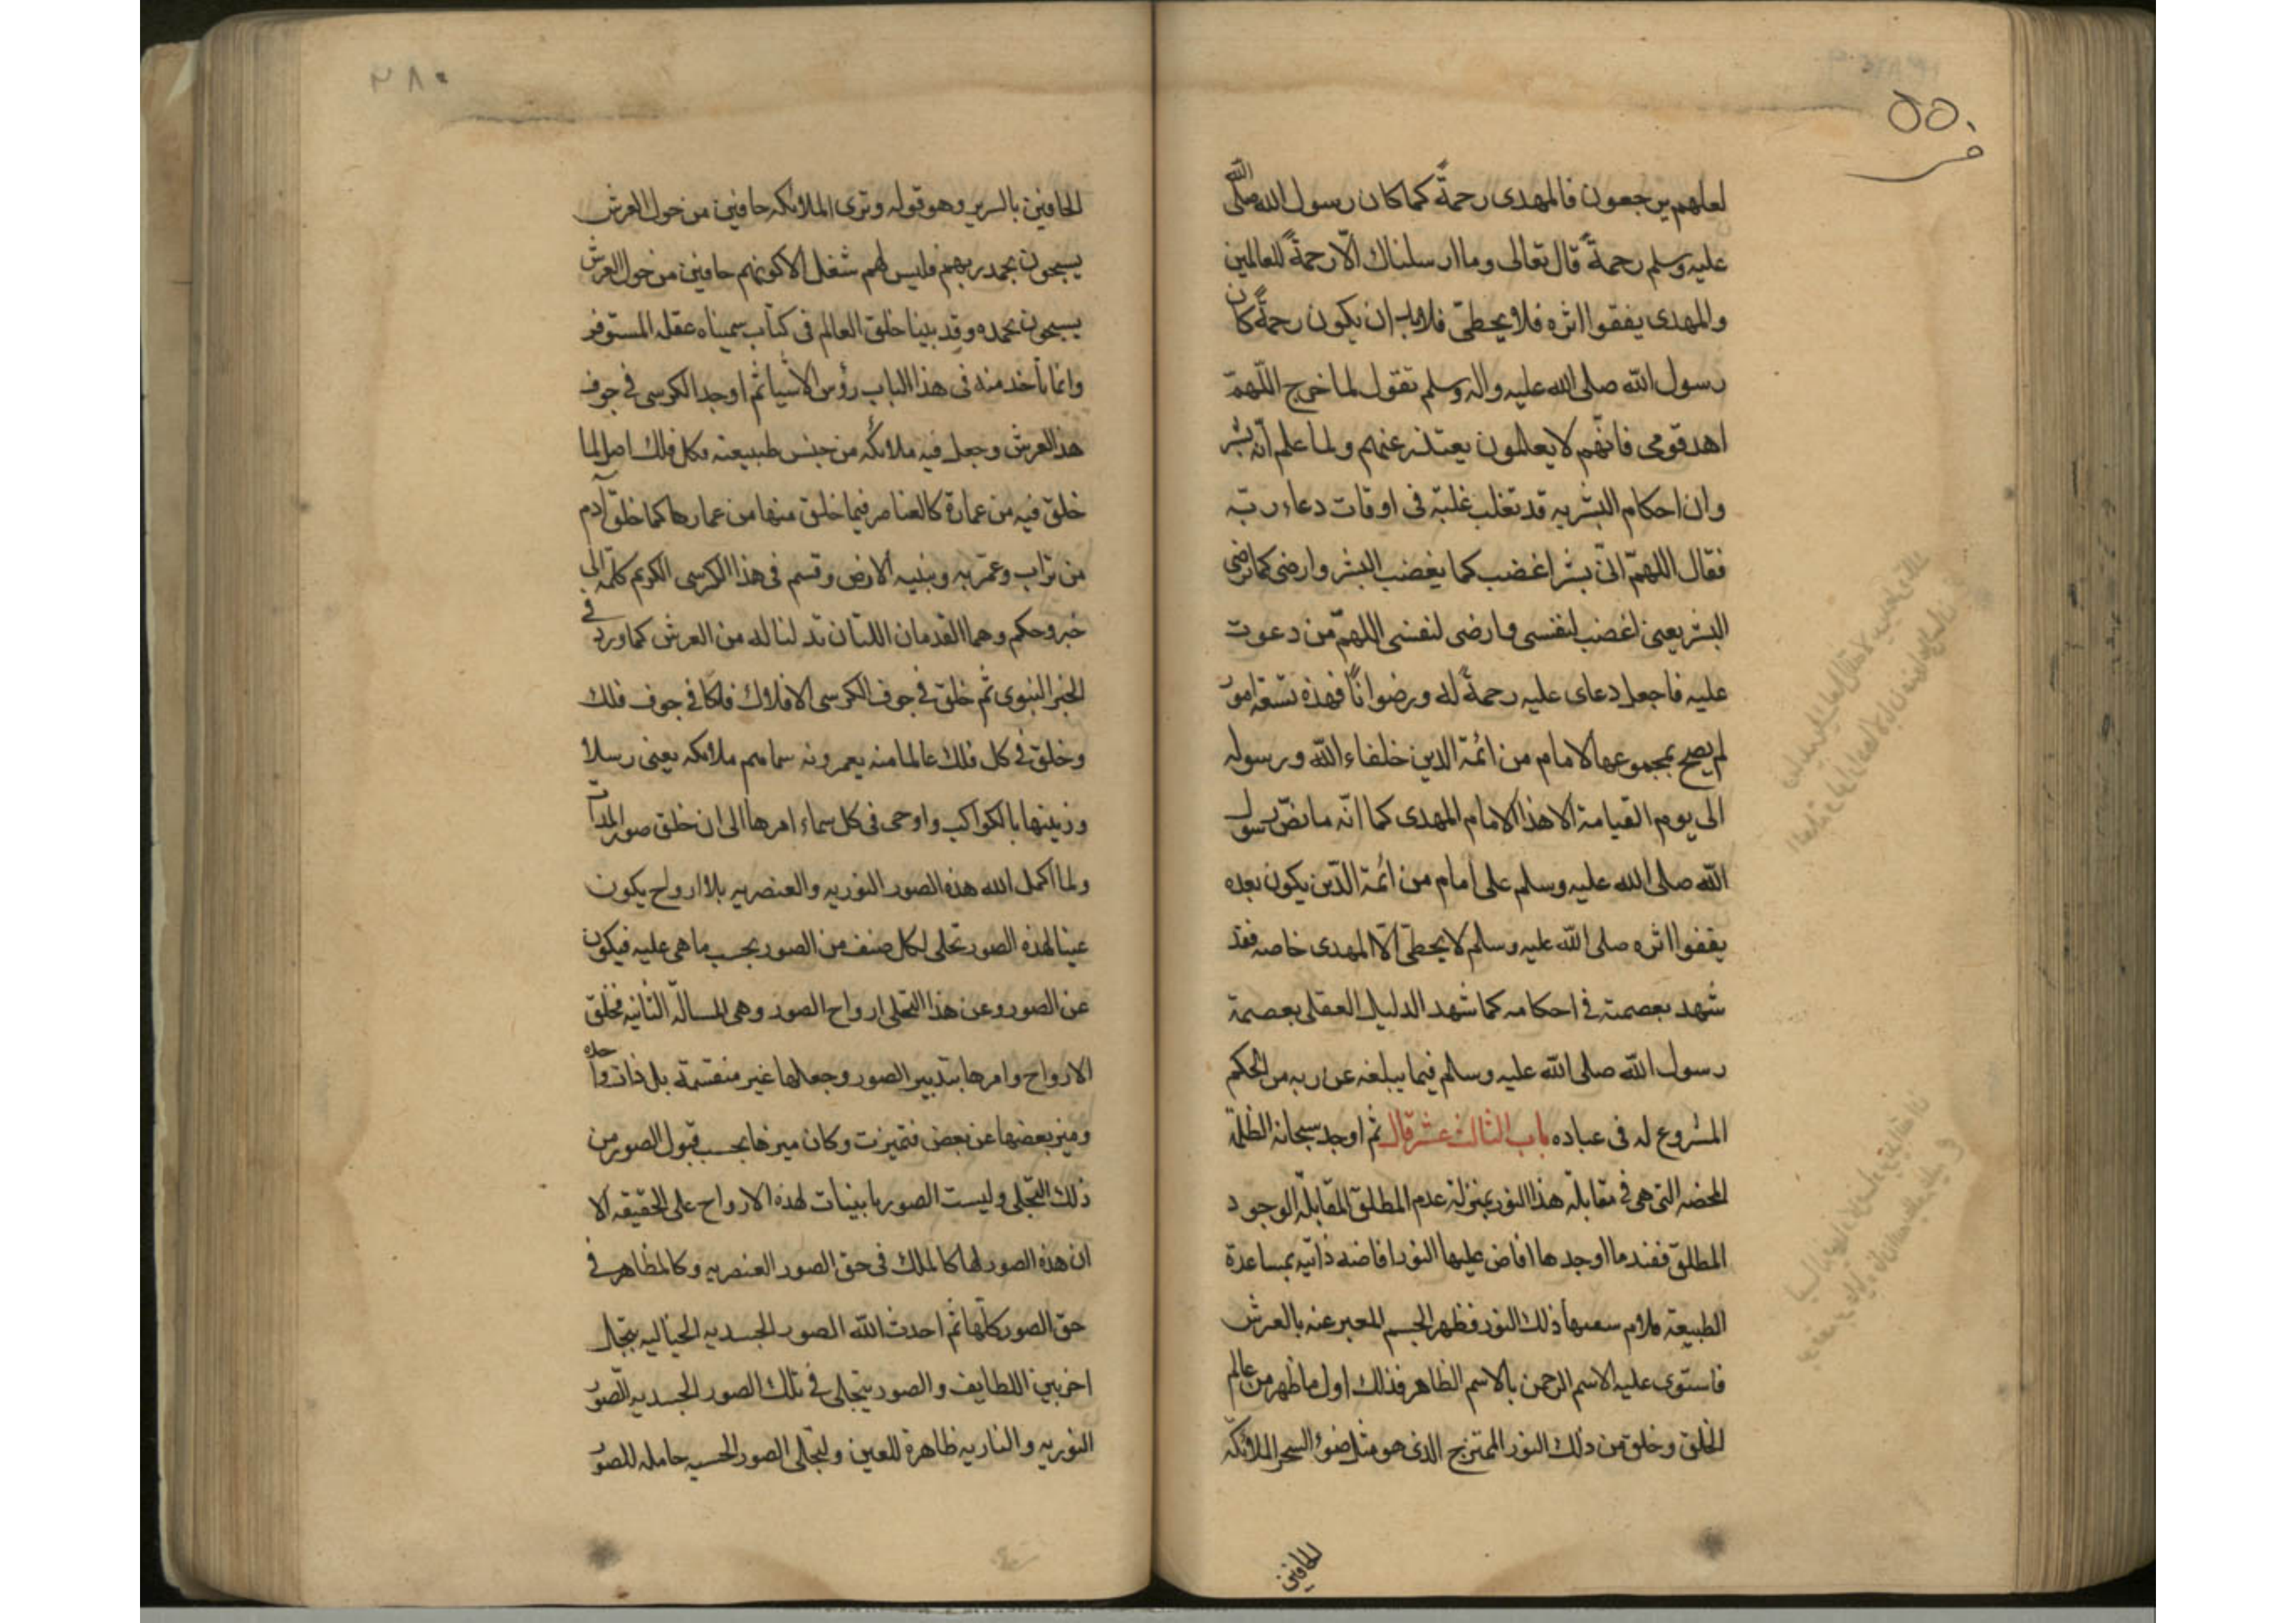 ٥٥٠
لعلهم يرجعون فالمهدى رحمةً كما كان رسول الله صلى الله
عليه وسلم رحمةً قال تعالى وما ارسلناك الّا رحمةً للعالمين
والمهدى يفقوا اثره فلا يحطىّ فلابد ان يكون رحمةً كان
رسول الله صلى الله عليه واله وسلم تقول لما خرج اللّهمّ
اهد قومى فانّهم لا يعلمون يعتذر عنهم ولما علم انّه بشر
وان احكام البشريه قد تغلب غلبته فى اوقات دعاء ربّه
فقال اللهمّ انّى بشر اغضب كما يغضب البشر وارضى كما ترضى
البشر يعنى اغضب لنفسى وارضى لنفسى اللهمّ من دعوت
عليه فاجعل دعاى عليه رحمةً له ورضواناً فهذه تسعة امور
لم يصح بمجموعها لامام من ائمّة الدين خلفاء الله ورسوله
الى يوم القيامة الا هذا الامام المهدى كما انّه ما نصّ رسول
الله صلى الله عليه وسلم على امام من ائمّة الدّين يكون بعده
يقفوا اثره صلى الله عليه وسلم لا يحطىّ الّا المهدى خاصه فقد
شهد بعصمته فى احكامه كما شهد الدليل العقلى بعصمة
رسول الله صلى الله عليه وسلم فيما يبلغه عن ربه من الحكم
المشروع له فى عباده باب الثالث عشر قال ثم اوجد سبحانه الظلمة
المحضه التى هى فى مقابلة هذا النور بمنزلة عدم المطلق المقابلة الوجود
المطلق فعند ما اوجدها افاض عليها النور افاضه ذاتيه بمساعدة
الطبيعة فلاءم سعتها ذلك النور فظهر الجسم المعبر عنه بالعرش
فاستوى عليه الاسم الرحمن بالاسم الظاهر فذلك اول ما ظهر من عالم
الخلق وخلق من ذلك النور الممتزج الذى هو مثل ضوء السحر الملائكه
الحافين
٣٨٠
الحافين بالسرير وهو قوله وترى الملائكه حافين من حول العرش
يسبحون بحمد ربهم فليس لهم شغل الا كونهم حافين من حول العرش
يسبحون بحمده وقد بينا خلق العالم فى كتاب سميناه عقله المستوفز
وانما نأخد منه فى هذا الباب رؤس الاشيا ثم اوجد الكرسى فى جوف
هذا العرش وجعل فيه ملائكه من جنس طبيعته فكل فلك اصل لما
خلق فيه من عمارة كالعناصر فيما خلق منها من عمارها كما خلق آدم
من تراب وعمّر به وبنيه الارض وقسم فى هذا الكرسى الكريم كلمه الى
خبر وحكم وهما القدمان اللتان تدلنا له من العرش كما ورد فى
الخبر النبوى ثم خلق فى جوف الكرسى الافلاك فلكا فى جوف فلك
وخلق فى كل فلك عالما منه يعمرونه سماهم ملائكه يعنى رسلا
وزينها بالكواكب واوحى فى كل سماء امرها الى ان خلق صور المولدات
ولما اكمل الله هذه الصور النوريه والعنصريه بلا ارواح يكون
عينا لهذه الصور تجلى لكل صنف من الصور بحسب ما هى عليه فيكون
عن الصور وعن هذا التجلى ارواح الصور وهى المسالة الثانيه فخلق
الارواح وامرها بتدبير الصور وجعلها غير منقسمة بل ذات واحده
وميز بعضها عن بعض فتميزت وكان ميزها بحسب قبول الصور من
ذلك التجلى وليست الصور باينيات لهذه الارواح على الحقيقه الا
ان هذه الصور لها كالملك فى حق الصور العنصريه وكالمظاهر فى
حق الصور كلها ثم احدث الله الصور الجسديه الخياليه بتجلٍ
اخر بين اللطايف والصور يتجلى فى تلك الصور الجسديه الصور
النوريه والناريه ظاهرة للعين ولتجلى الصور الحسيه حامله للصور